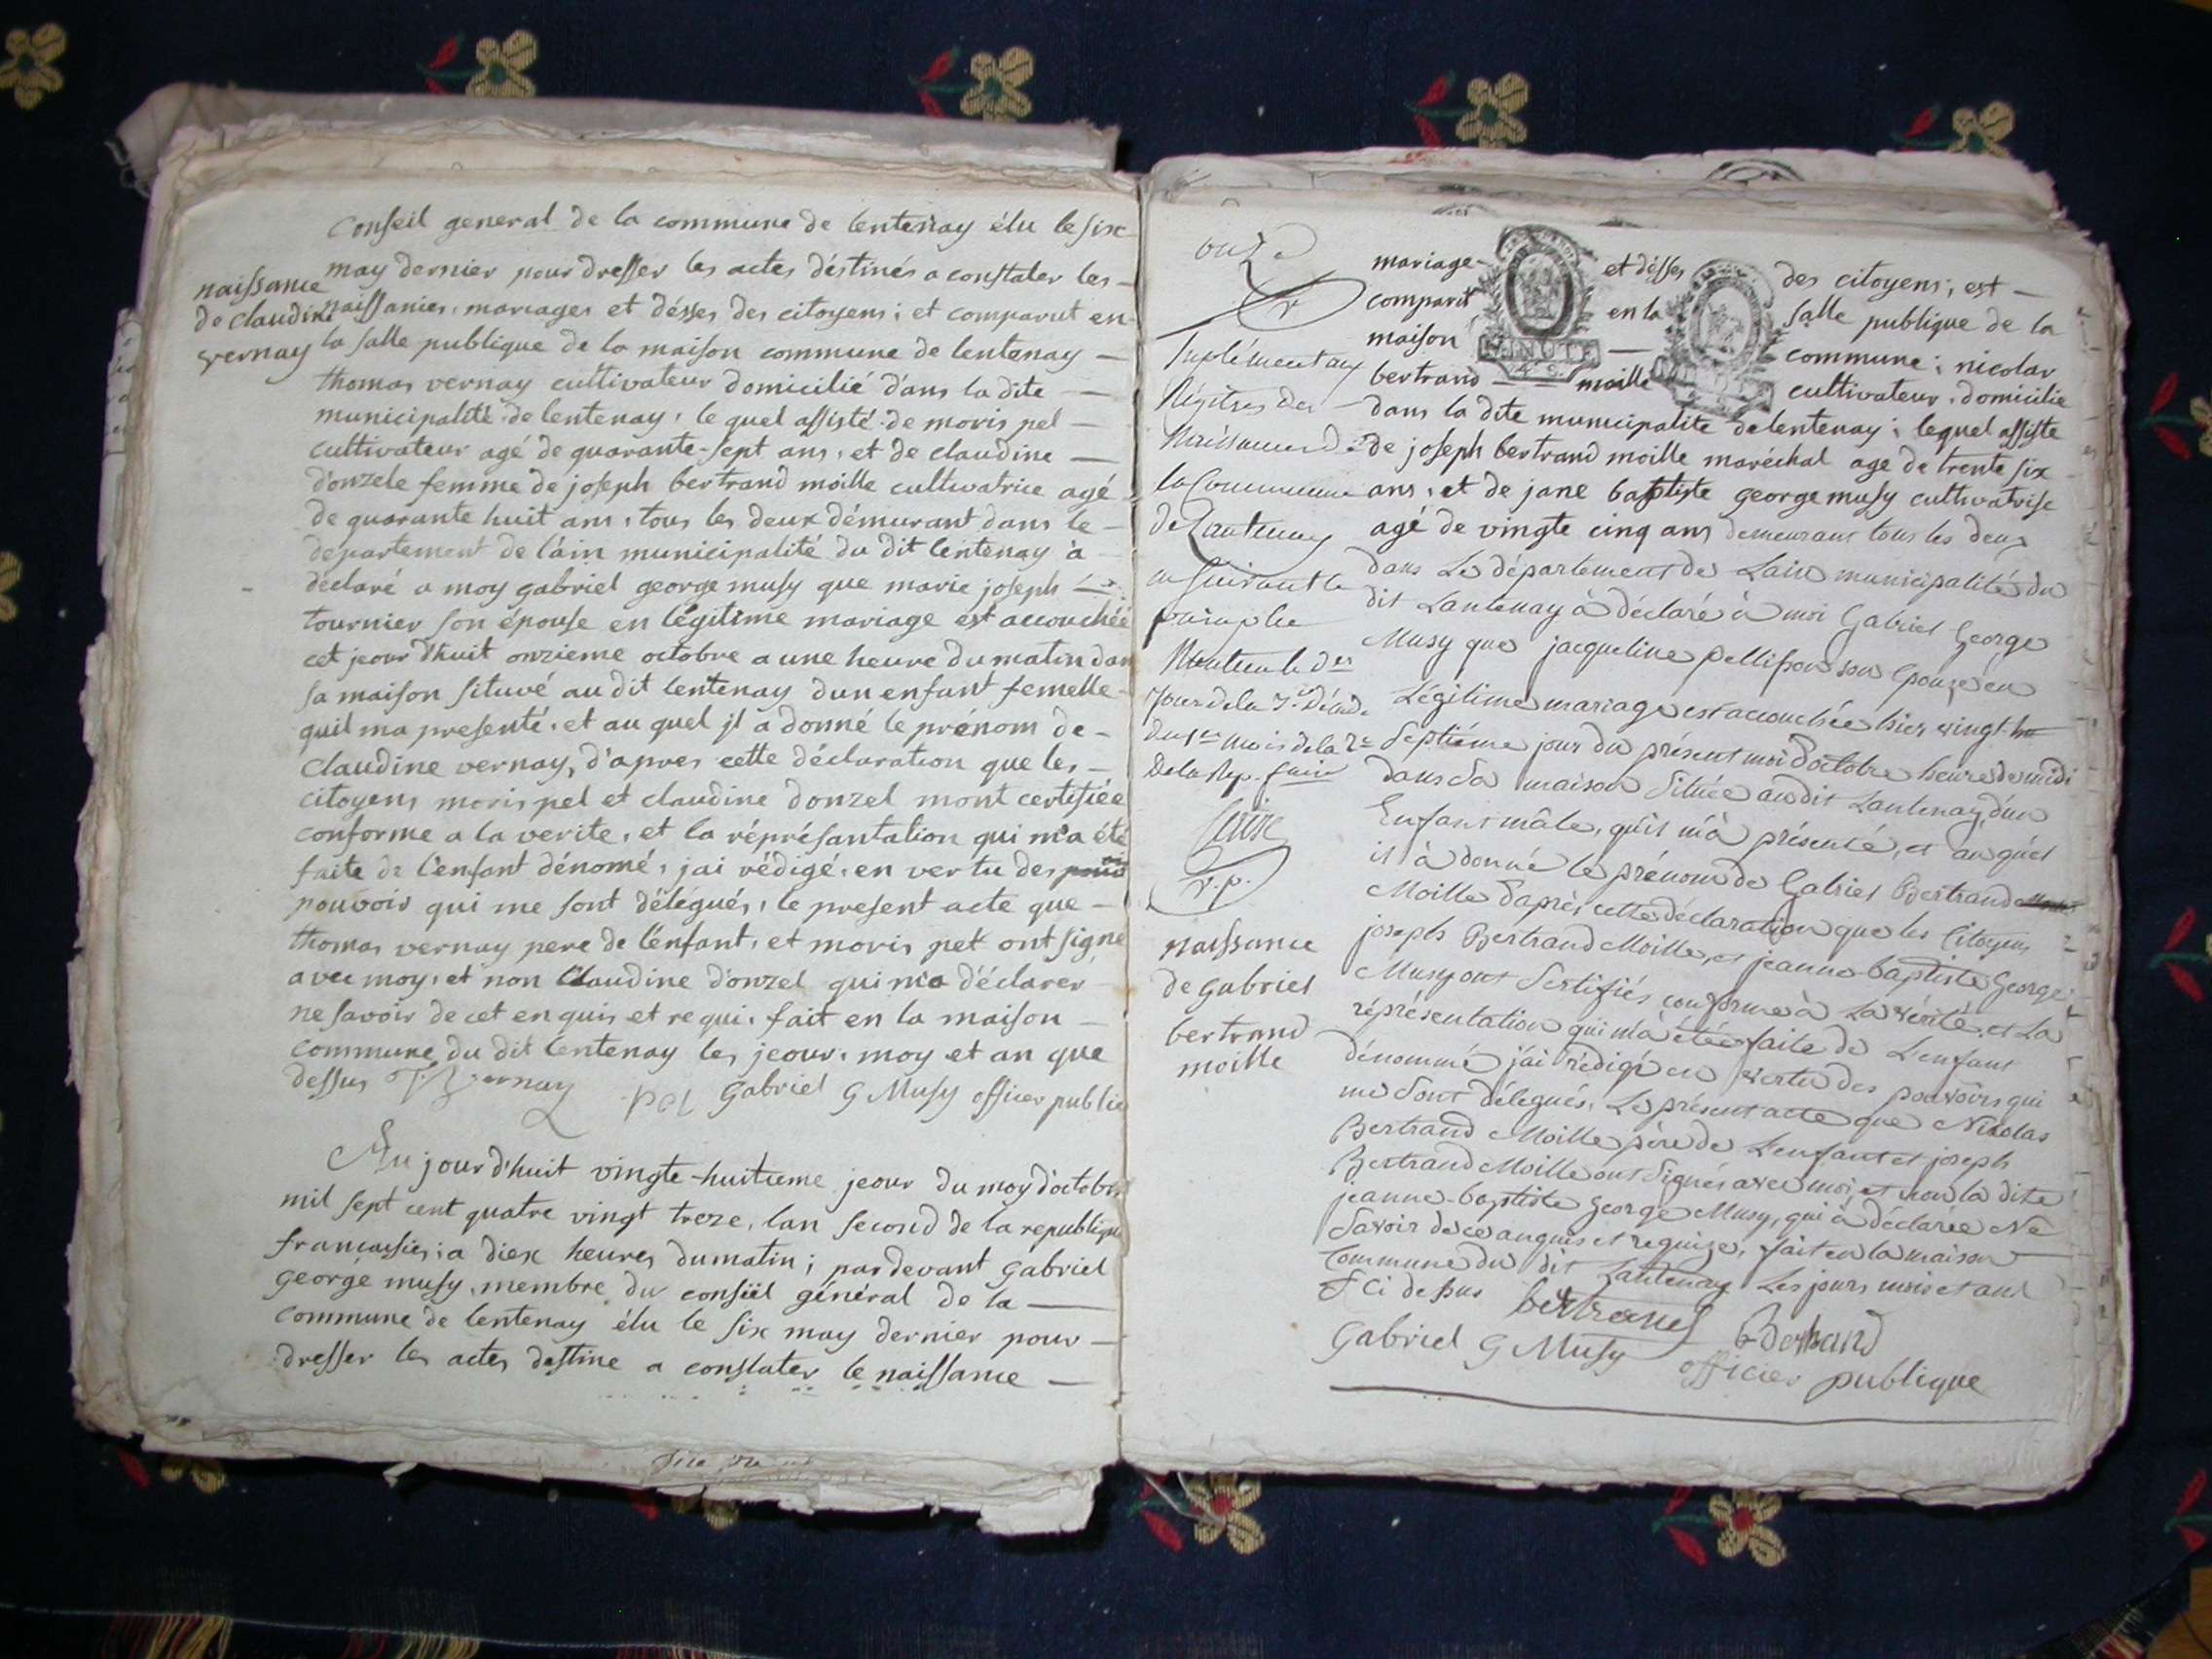 conseil general de la commune de lentenay élu le six
may dernier pour dresser les actes déstinés a constater les
naissance
de claudine
vernay
naissanies, mariages et désses des citoyens ; et comparut en
la salle publique de la maison commune de lentenay
thomas vernay cultivateur domicilié dans la dite
municipalité de lentenay, le quel assisté de moris pel
cultivateur agé de quarante-sept ans, et de claudine
donzele femme de joseph bertrand moille cultivatrice agé
de quarante huit ans, tous les deux démurant dans le
departement de l'ain municipalité du dit lentenay à
déclaré a moy gabriel george musy que marie joseph
tournier son épouse en légitime mariage est accouchéé
cet jeour d'huit onzieme octobre a une heure du matin dan
sa maison situvé au dit lentenay dun enfant femelle
quil ma presenté, et au quel jl a donné le prénom de
claudine vernay, d'apres cette déclaration que les
citoyens moris pel et claudine donzel mont certifiée
conforme a la verite, et la réprésantation qui m'a été
faite de l'enfant dénomé, jai rédigé, en vertu des
pouvoir qui me sont délégués, le present acte que
thomas vernay pere de l'enfant, et moris pel ont signé
avec moy, et non Claudine donzel qui m'a déclarer
ne savoir de cet enquis et requi, fait en la maison
commune du dit lentenay les jeour, moy et an que
dessus vernay pel gabriel G Musy officier public
Au jourd'huit vingte-huitieme jeour du moy d'octobre
mil sept cent quatre vingt treze, lan second de la republique
francaises ; a diex heures du matin ; par devant gabriel
george musy, membre du consiél général de la
commune de lentenay élu le six may dernier pour
dresser les actes destine a constater le naissance
onze
mariage et désses des citoyens, est
comparut en la salle publique de la
maison commune ; nicolas
bertrand moille cultivateur, domicilie
MINUTE
dans la dite municipalite de lentenay ; lequel assiste
de joseph bertrand moille maréchal age de trente six
ans, et de jane baptiste george musy cultivatrise
agé de vingte cinq ans demeurant tous les deux
dans Le département de Lain municipalités du
dit Lantenay à déclaré à moi Gabriel George
Musy que jacqueline pellisson son Epouze en
Légitime mariage est accouchée hier vingt
Septième jour du présent moi d'octobre heure de midi
dans Sa maison Située audit Lantenay, d'un
Enfant mâle, qu'il m'à présenté, et auquel
il à donné le prénom de Gabriel Bertrand
Moille d'après cette déclaration que les Citoyens
joseph Bertrand Moille, et jeanne baptiste George
Musy ont Sertifiés conforme à La vérité, et La
réprésentation qui m'à étée faite de L'enfant
dénommé j'ai rédigé en vertu des pouvoirs qui
me Sont délegués, Le présent acte que Nicolas
Bertrand Moille père de L'enfant et joseph
Bertrand Moille ont Signés avec moi, et non la dite
jeanne-baptiste George Musy, qui à déclarée Ne
Savoir de ce anquis et requize, fait en la maison
Commune du dit Lantenay Les jours mois et an
Ci dessus bertrand Bertrand
Gabriel G Musy officier publique
Suplémentaux
Régitres des
Naissances de
la Commune
de Lantenay
en Suivant le
paraphe
Nantua le
jour de la 3e Décade
du 1er mois de la 2e
De la Rep. fuie
naissance
de gabriel
bertrand
moille